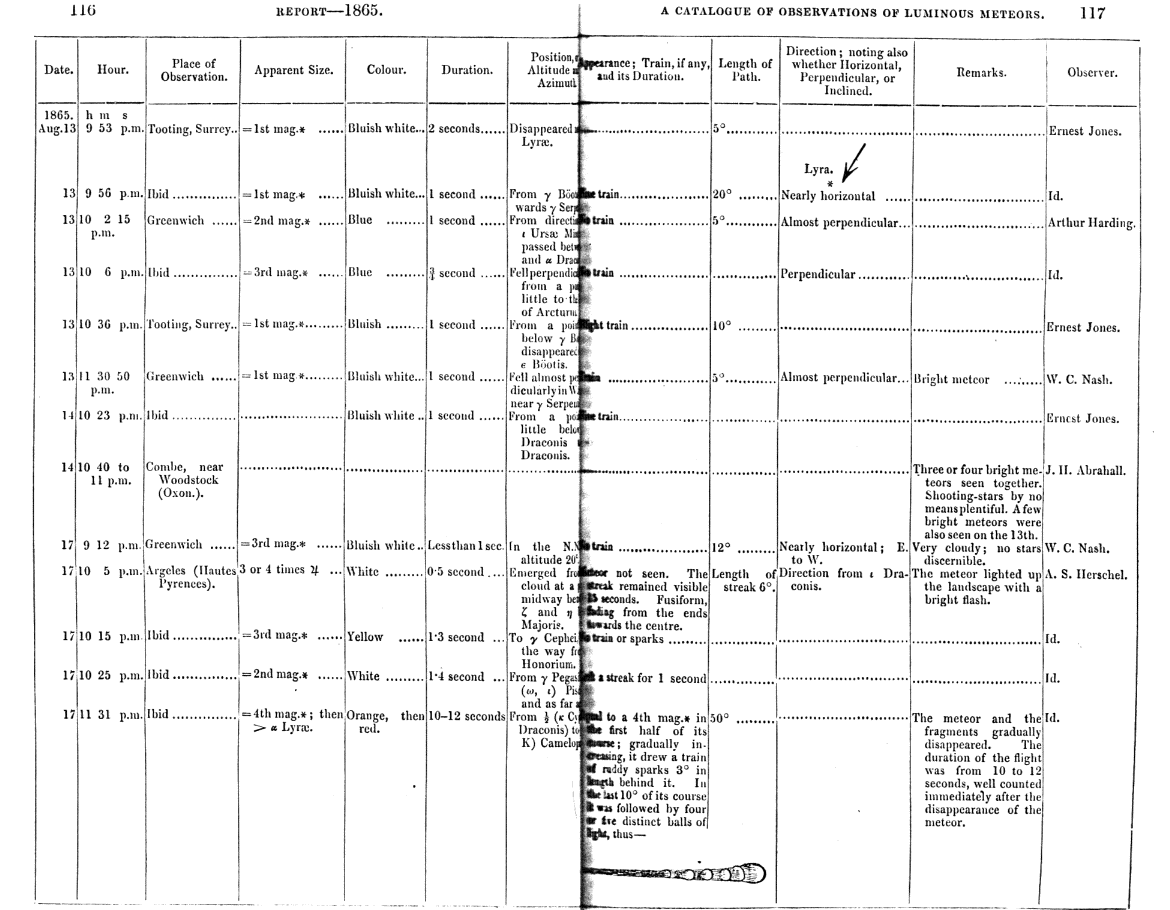 116 REPORT—1865.
A CATALOGUE OF OBSERVATIONS OF LUMINOUS METEORS. 117
Date. Hour. Place of Observation. Apparent Size. Colour. Duration. Position, Altitude Azimuth Appearance; Train, if any, and its Duration. Length of Path. Direction; noting also whether Horizontal, Perpendicular, or Inclined. Remarks. Observer.
1865. h m s
Aug.13 9 53 p.m. Tooting, Surrey.. =1st mag.* ...... Bluish white... 2 seconds...... Disappeared 5°........... Ernest Jones.
Lyræ.
Lyra.
*
13 9 56 p.m. Ibid ............... =1st mag.* ...... Bluish white... 1 second ...... From γ train............... 20° ......... Nearly horizontal ...... Id.
wards γ
13 10 2 15 Greenwich ...... =2nd mag.* ...... Blue ......... 1 second ...... From train ............... 5°........... Almost perpendicular... Arthur Harding.
p.m. ι Ursæ
passed
and α
13 10 6 p.m. Ibid ............... =3rd mag.* ...... Blue ......... ¾ second ...... Fell train ............... Perpendicular ............ Id.
from a
little to
of Arcturus
13 10 36 p.m. Tooting, Surrey.. =1st mag.*......... Bluish ......... 1 second ...... From a train ............... 10° ......... Ernest Jones.
below γ
disappeared
ε Böotis.
13 11 30 50 Greenwich ...... =1st mag.*......... Bluish white... 1 second ...... Fell almost 5°........... Almost perpendicular... Bright meteor ......... W. C. Nash.
p.m. dicularly in
near γ
14 10 23 p.m. Ibid ............... Bluish white .. 1 second ...... From a train............... Ernest Jones.
little
Draconis
Draconis.
14 10 40 to Combe, near Three or four bright me- J. H. Abrahall.
11 p.m. Woodstock teors seen together.
(Oxon.). Shooting-stars by no
means plentiful. A few
bright meteors were
also seen on the 13th.
17 9 12 p.m. Greenwich ...... =3rd mag.* ...... Bluish white .. Less than 1 sec. In the train ............... 12° ......... Nearly horizontal; E. Very cloudy; no stars W. C. Nash.
altitude 20° to W. discernible.
17 10 5 p.m. Argeles (Hautes 3 or 4 times ♃ ... White ......... 0·5 second .... Emerged not seen. The Length of Direction from ι Dra- The meteor lighted up A. S. Herschel.
Pyrences). cloud at a streak remained visible streak 6°. conis. the landscape with a
midway seconds. Fusiform, bright flash.
ζ and η fading from the ends
Majoris. towards the centre.
17 10 15 p.m. Ibid ............... =3rd mag.* ...... Yellow ...... 1·3 second ... To γ Cephei train or sparks ......... Id.
the way
Honorium.
17 10 25 p.m. Ibid ............... =2nd mag.* ...... White ......... 1·4 second ... From γ a streak for 1 second Id.
(ω, ι)
and as far
17 11 31 p.m. Ibid ............... =4th mag.*; then Orange, then 10–12 seconds From ½ (κ to a 4th mag.* in 50° ......... The meteor and the Id.
> α Lyræ. red. Draconis) the first half of its fragments gradually
K) course; gradually in- disappeared. The
creasing, it drew a train duration of the flight
of ruddy sparks 3° in was from 10 to 12
length behind it. In seconds, well counted
the last 10° of its course immediately after the
it was followed by four disappearance of the
or five distinct balls of meteor.
light, thus—